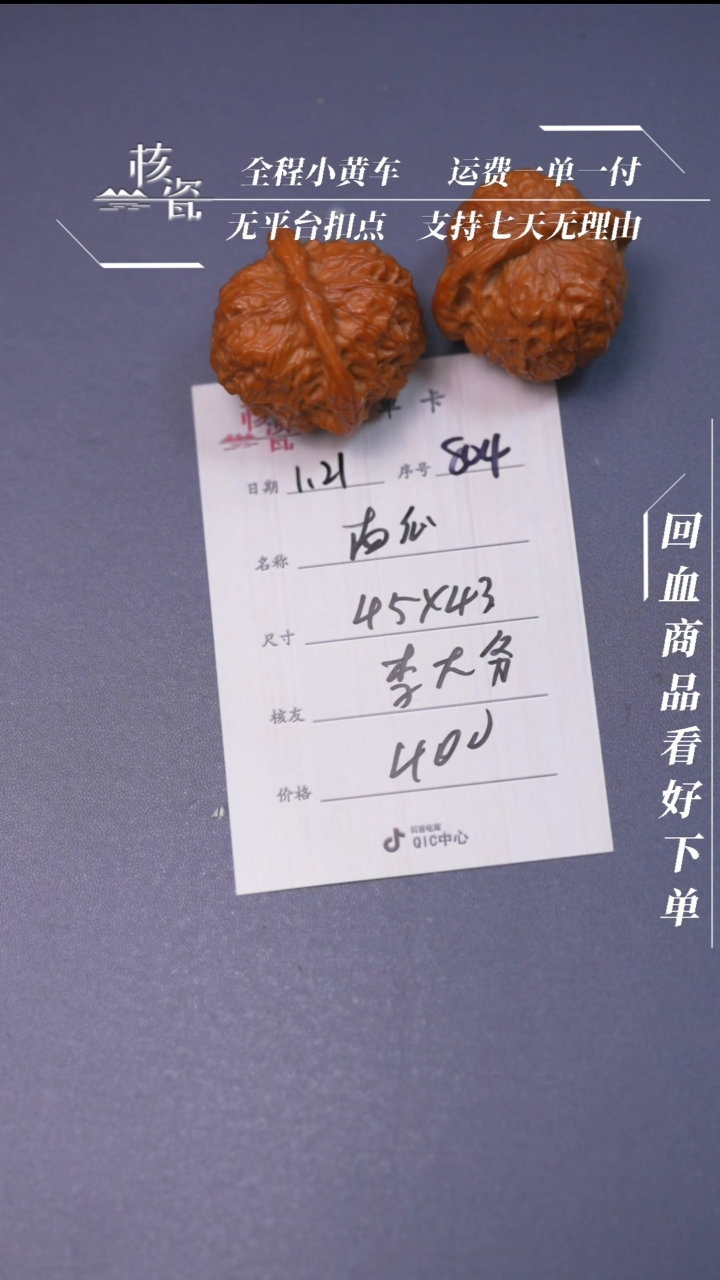 核瓷
全程小黄车 运费一单一付
无平台扣点 支持七天无理由
核瓷 单卡
日期 1.21 序号 804
名称 南瓜
尺寸 45X43
核友 李大务
价格 400
QIC中心
回血商品看好下单